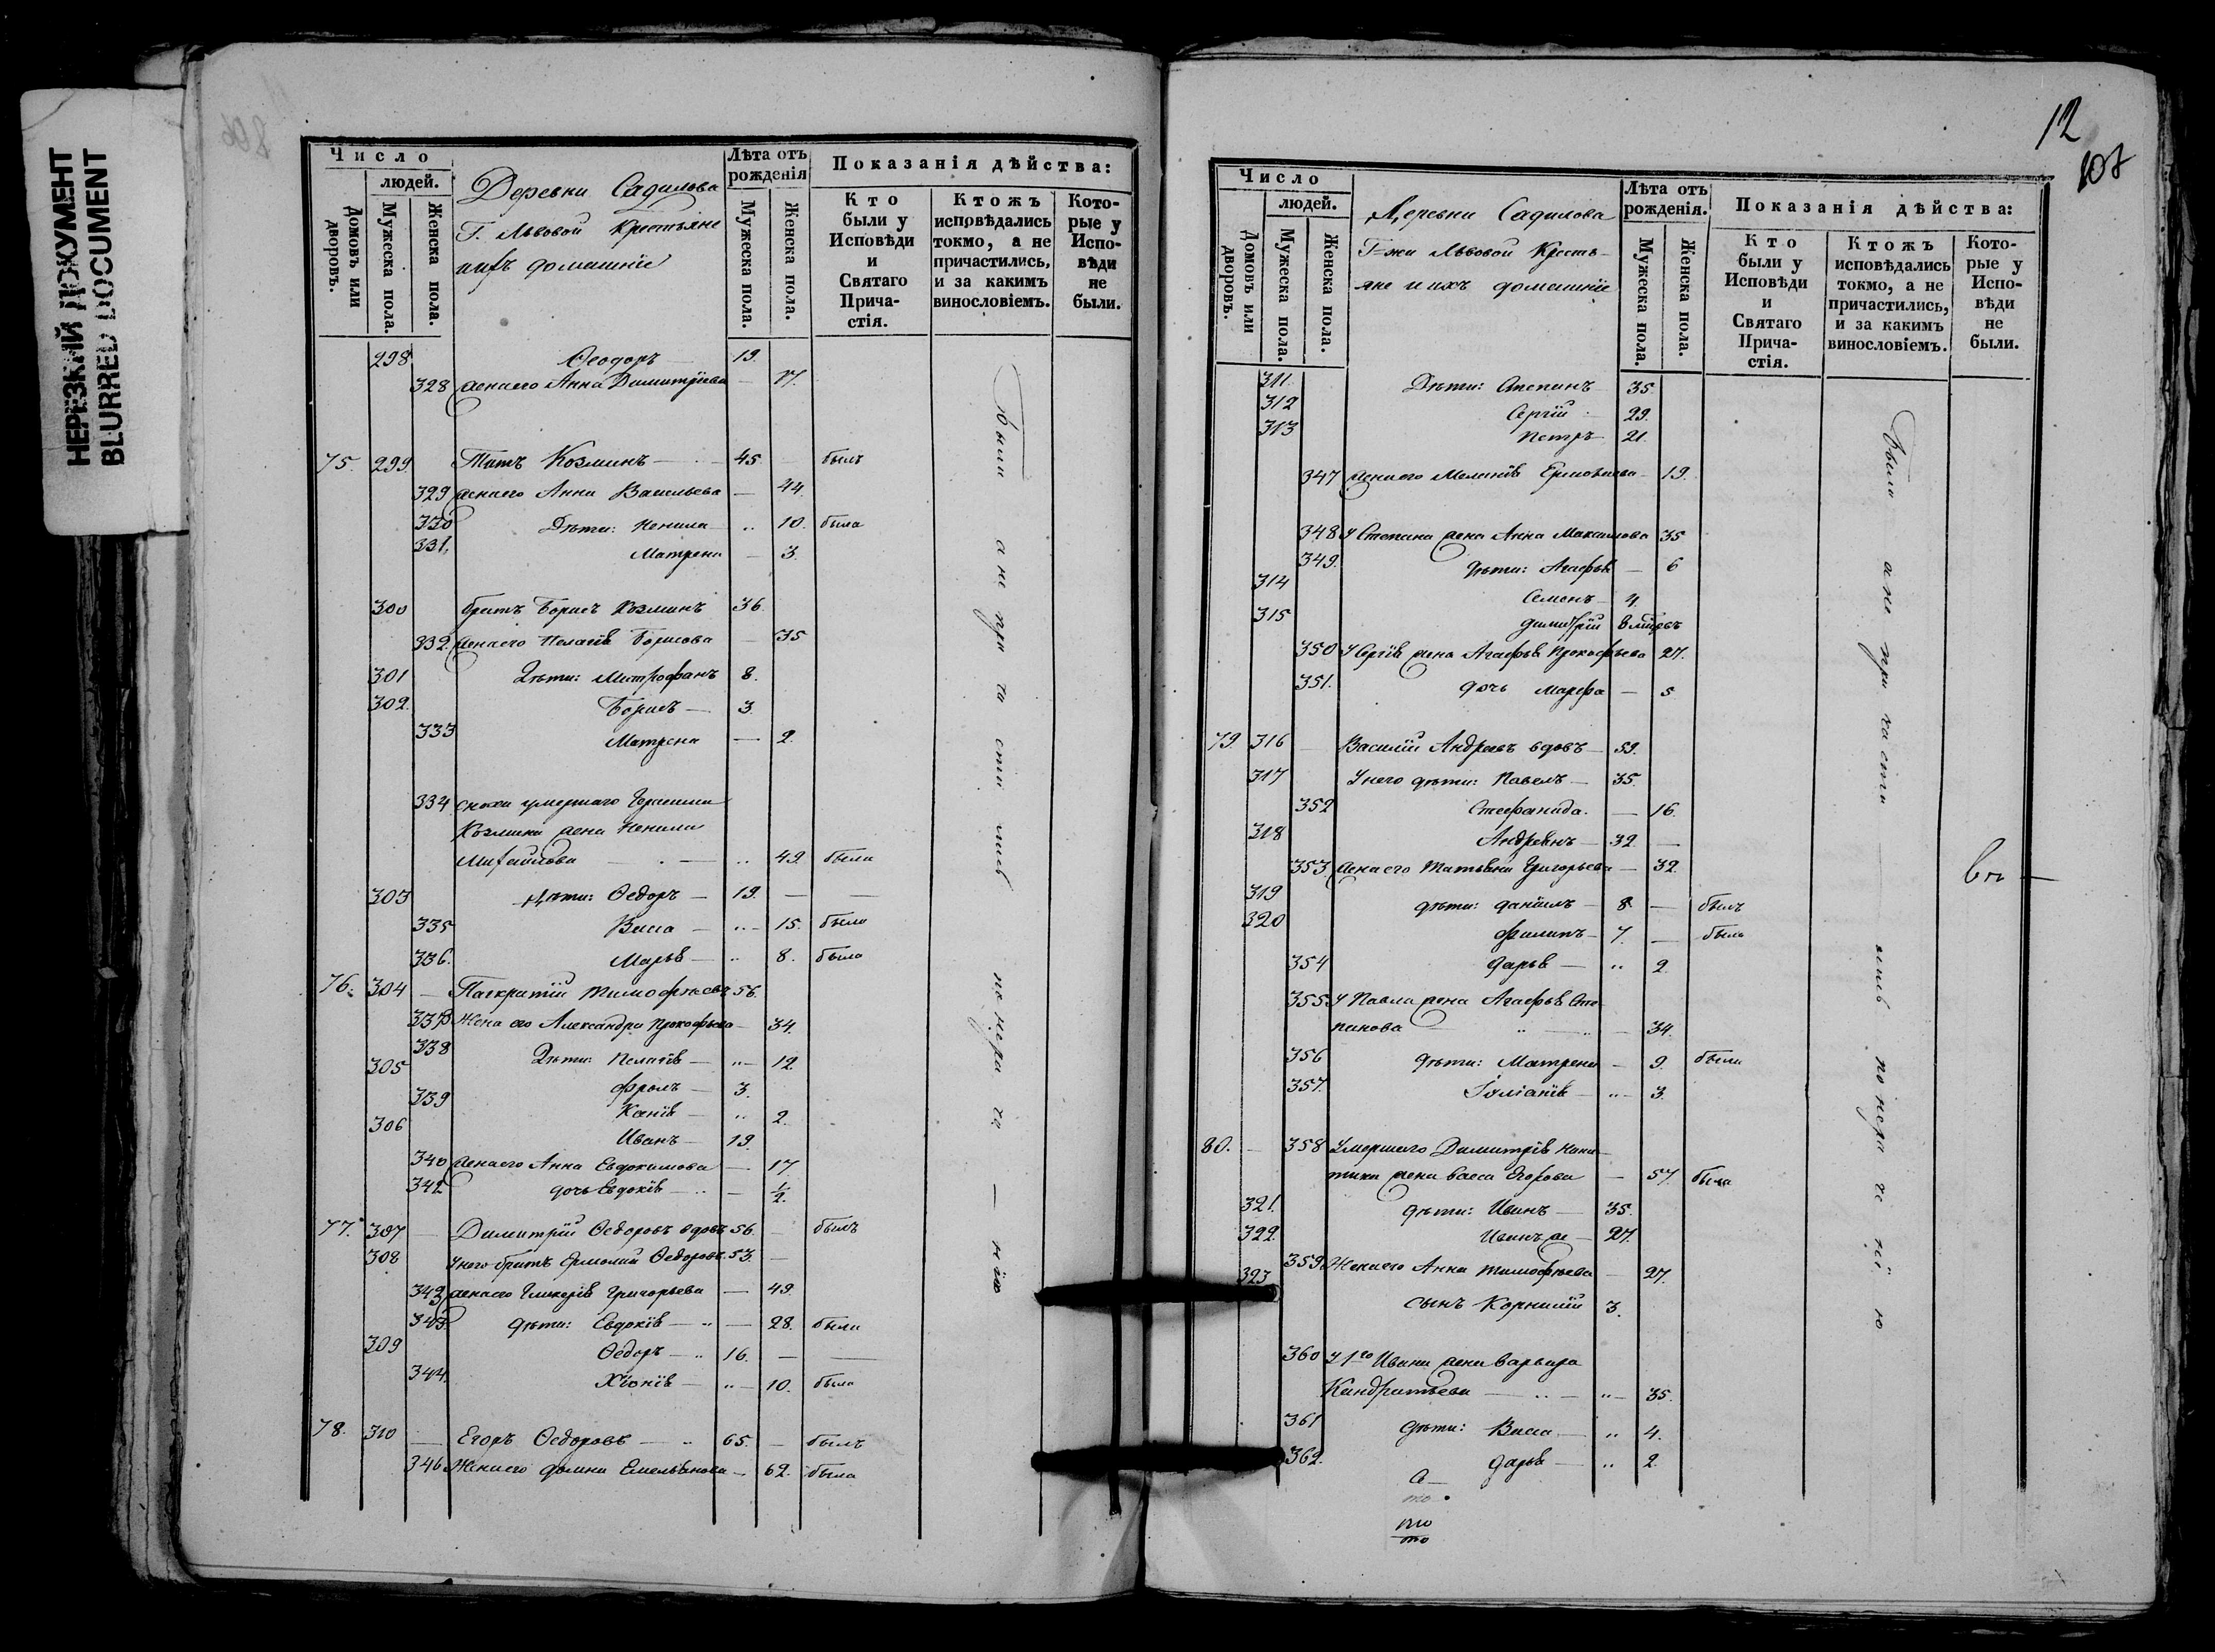 НЕРЕЗКИЙ ДОКУМЕНТ
BLURRED DOCUMENT
Число
людей.
Домовъ или дворовъ.
Мужеска пола.
Женска пола.
Деревни Садилова
Г. Львовой Крестьяне
ихъ домашніе
Лѣта отъ рожденія
Мужеска пола.
Женска пола.
Показанія дѣйства:
Кто были у Исповѣди и Святаго Причастія.
Ктожъ исповѣдались токмо, а не причастились, и за какимъ винословіемъ.
Которые у Исповѣди не были.
298 Ѳеодоръ 19.
328 жена его Анна Димитріева — 17.
75. 299 Титъ Козминъ — 45 — былъ
329 жена его Анна Васильева — 44.
330 Дѣти: Ненила .. 10. была
331. Матрена — 3.
300 братъ Борисъ Козминъ 36.
332. жена его Пелагія Борисова — 35
301 Дѣти: Митрофанъ 8.
302. Борисъ — 3.
333 Матрена — 2.
334 сноха умершаго Герасима
Козмина жена Ненила
Михайлова — .. 49 была
303 Дѣти: Ѳедоръ — 19. —
335 Васса — .. 15. была
336. Марья — .. 8. была
76. 304 — Панкратій Тимофѣевъ 56.
337 Жена его Александра Прокофьева — 34.
338 Дѣти: Пелагія — .. 12
305 Фролъ — 3.
339 Ксенія — .. 2.
306 Иванъ — 19.
340 жена его Анна Евдокимова — 17
342 дочь Евдокія — .. — 1/2.
77. 307 — Димитрій Ѳедоровъ вдовъ 56. — былъ
308 У него братъ Ермолай Ѳедоровъ 53. —
342 жена его Гликерія Григорьева — 49.
343. дѣти: Евдокія — .. — 28. была
309 Ѳедоръ — .. 16. —
344. Хіонія — .. — 10. была
78. 310 — Егоръ Ѳедоровъ — .. 65. — былъ
346 Жена его Домна Емельянова — 62. была
Были а не при ча сти лись по нера че — нію
12
Число
людей.
Домовъ или дворовъ.
Мужеска пола.
Женска пола.
Деревни Садилова
Г-жи Львовой Кресть-
яне и ихъ домашніе
Лѣта отъ рожденія.
Мужеска пола.
Женска пола.
Показанія дѣйства:
Кто были у Исповѣди и Святаго Причастія.
Ктожъ исповѣдались токмо, а не причастились, и за какимъ винословіемъ.
Которые у Исповѣди не были.
311. Дѣти: Степанъ 35.
312 Сергій 29.
313 Петръ 21.
347 жена его Меланія — 19.
348 У Степана жена Анна Максимова 35
349. Дѣти: Агафья — 6
314 Семенъ 4.
315 Димитрій
350 У Сергія жена Агафья Прокофьева 27.
351. дочь Марфа — 5
79. 316 — Василій Андреевъ вдовъ — 59.
317 У него дѣти: Павелъ — 35.
352 Стефанида. — 16.
318 Андреянъ — 32 —
353. жена его Татьяна Григорьева — 32.
319 дѣти: Даніилъ — 8. — былъ
320 Филипъ — 7. — былъ
354 Дарья — .. 2
355 У Павла жена Агафья Сте-
панова — 34.
356 дѣти: Матрена — 9. была
357. Іуліанія — .. — 3.
80. — 358 Умершаго Димитрія
жена Васса Егорова — 57. была
321. дѣти: Иванъ — 35.
322. Иванъ же — 27.
359 Жена его Анна Тимофѣева — 27.
323 сынъ Корнилій 3.
360 У 1го Ивана жена Варвара
Кандратьева — .. — 35.
361 дѣти: Васса — .. 4.
362. Дарья — .. 2.
Были а не при ча сти лись по нера че ні ю